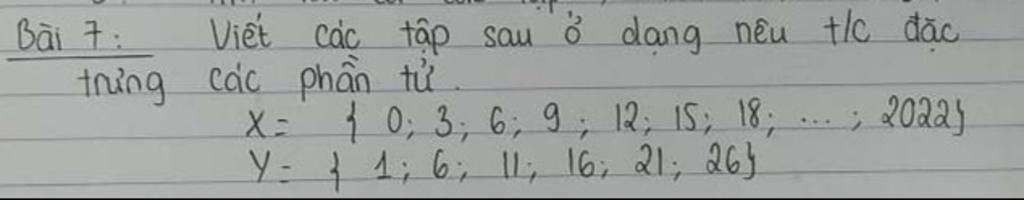 Bài 7: Viết các tập sau ở dạng nêu t/c đặc
trưng các phần tử.
X = { 0; 3; 6; 9; 12; 15; 18; ...; 2022}
Y = { 1; 6; 11; 16; 21; 26}